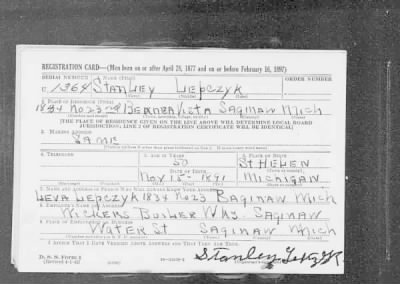 REGISTRATION CARD—(Men born on or after April 28, 1877 and on or before February 16, 1897)
SERIAL NUMBER 1. NAME (Print) ORDER NUMBER
U 1364 STANLEY LEPCZYK
(First) (Middle) (Last)
2. PLACE OF RESIDENCE (Print)
1834 NO 23 BUENA VISTA SAGINAW Mich
[THE PLACE OF RESIDENCE GIVEN ON THE LINE ABOVE WILL DETERMINE LOCAL BOARD
JURISDICTION; LINE 2 OF REGISTRATION CERTIFICATE WILL BE IDENTICAL]
3. MAILING ADDRESS
SAME
4. TELEPHONE 5. AGE IN YEARS 6. PLACE OF BIRTH
50 St HELEN
DATE OF BIRTH
Nov 15- 1891 MICHIGAN
7. NAME AND ADDRESS OF PERSON WHO WILL ALWAYS KNOW YOUR ADDRESS
LEVA LEPCZYK 1834 NO 23 SAGINAW Mich
8. EMPLOYER'S NAME AND ADDRESS
WICKERS BOILER SAGINAW
9. PLACE OF EMPLOYMENT OR BUSINESS
WATER St SAGINAW Mich
I AFFIRM THAT I HAVE VERIFIED ABOVE ANSWERS AND THAT THEY ARE TRUE.
D. S. S. Form 1
(Revised 4-1-42)
Stanley Lepczyk